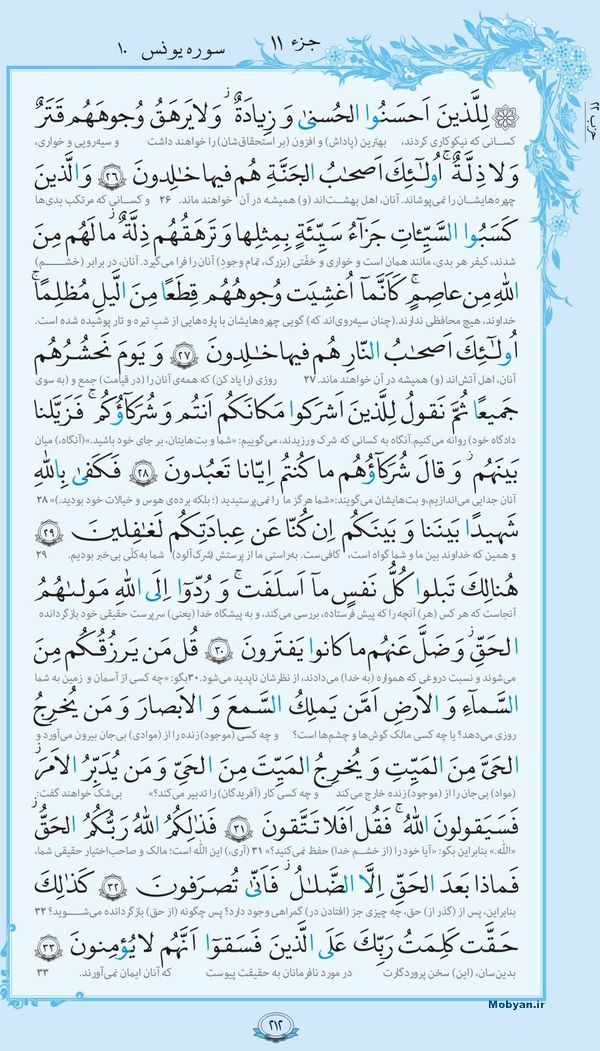 جزء ۱۱
سوره یونس ۱۰
حزب ۲۲
لِلَّذينَ اَحسَنُوا الحُسنىٰ وَ زِيادَةٌ ۖ وَ لا يَرهَقُ وُجوهَهُم قَتَرٌ
کسـانی که نیکوکاری کردند، بهترین (پاداش) و افزون (بر استحقاق‌شان) را خواهند داشت و سیه‌رویی و خواری،
وَ لا ذِلَّةٌ ۚ اُولـٰئِكَ اَصحابُ الجَنَّةِ هُم فيها خالِدونَ ﴿۲۶﴾ وَ الَّذينَ
چهره‌هایشان را نمی‌پوشاند. آنان، اهل بهشت‌اند (و) همیشه در آن خواهند ماند. ۲۶ و کسانی که مرتکب بدی‌ها
كَسَبُوا السَّيِّئاتِ جَزاءُ سَيِّئَةٍ بِمِثلِها وَ تَرهَقُهُم ذِلَّةٌ ۖ ما لَهُم مِنَ
شدند، کیفر هر بدی، مانند همان است و خواری و خفّتی (بزرگ، تمام وجودِ) آنان را فرا می‌گیرد. آنان، در برابر (خشـم)
اللهِ مِن عاصِمٍ ۖ كَأَنَّما اُغشِيَت وُجوهُهُم قِطَعًا مِنَ الَّيلِ مُظلِمًا ۚ
خداوند، هیچ محافظی ندارند. (چنان سیه‌روی‌اند که) گویی چهره‌هایشان با پاره‌هایی از شبِ تیره و تار پوشیده شده است.
اُولـٰئِكَ اَصحابُ النّارِ هُم فيها خالِدونَ ﴿۲۷﴾ وَ يَومَ نَحشُرُهُم
آنان، اهل آتش‌اند (و) همیشه در آن خواهند ماند. ۲۷ روزی (را یاد کن) که همه‌ی آنان را (در قیامت) جمع و (به سوی
جَميعًا ثُمَّ نَقولُ لِلَّذينَ اَشرَكوا مَكانَكُم اَنتُم وَ شُرَكاؤُكُم ۚ فَزَيَّلنا
دادگاه خود) روانه می‌کنیم. آنگاه به کسانی که شرک ورزیدند، می‌گوییم: «شما و بت‌هایتان، بر جای خود باشید.» (آنگاه،) میان
بَينَهُم ۖ وَ قالَ شُرَكاؤُهُم ما كُنتُم اِيّانا تَعبُدونَ ﴿۲۸﴾ فَكَفىٰ بِاللهِ
آنان جدایی می‌اندازیم، و بت‌هایشان می‌گویند: «شما هرگز ما را نمی‌پرستیدید (؛ بلکه برده‌ی هوس و خیالات خود بودید.)» ۲۸
شَهيدًا بَينَنا وَ بَينَكُم اِن كُنّا عَن عِبادَتِكُم لَغافِلينَ ﴿۲۹﴾
و همین که خداوند بین ما و شما گواه است، کافی‌ست. به‌راستی ما از پرستش (شرک‌آلود) شما به‌کلّی بی‌خبر بودیم. ۲۹
هُنالِكَ تَبلوا كُلُّ نَفسٍ ما اَسلَفَت ۚ وَ رُدّوا اِلَى اللهِ مَولاهُمُ
آنجاست که هر کس (هر) آنچه را که پیش فرستاده، بررسی می‌کند، و به پیشگاه خدا (یعنی) سرپرست حقیقی خود بازگردانده
الحَقِّ ۖ وَ ضَلَّ عَنهُم ما كانوا يَفتَرونَ ﴿۳۰﴾ قُل مَن يَرزُقُكُم مِنَ
می‌شوند و نسبت دروغی که همواره (به خدا) می‌دادند، از نظرشان ناپدید می‌شود. ۳۰ بگو: «چه کسی از آسمان و زمین به شما
السَّماءِ وَ الاَرضِ اَمَّن يَملِكُ السَّمعَ وَ الاَبصارَ وَ مَن يُخرِجُ
روزی می‌دهد؟ یا چه کسی مالک گوش‌ها و چشم‌ها است؟ و چه کسی (موجودِ) زنده را از (موادی) بی‌جان بیرون می‌آورد و
الحَيَّ مِنَ المَيِّتِ وَ يُخرِجُ المَيِّتَ مِنَ الحَيِّ وَ مَن يُدَبِّرُ الاَمرَ ۚ
(مواد) بی‌جان را از (موجودِ) زنده خارج می‌کند و چه کسی کار (آفریدگان) را تدبیر می‌کند؟» بی‌شک خواهند گفت:
فَسَيَقولونَ اللهُ ۚ فَقُل اَفَلا تَتَّقونَ ﴿۳۱﴾ فَذٰلِكُمُ اللهُ رَبُّكُمُ الحَقُّ ۖ
«الله.» بنابراین بگو: «آیا خود را (از خشم خدا) حفظ نمی‌کنید؟» ۳۱ (آری،) این الله است؛ مالک و صاحب‌اختیار حقیقی شما،
فَماذا بَعدَ الحَقِّ اِلَّا الضَّلالُ ۖ فَاَنّىٰ تُصرَفونَ ﴿۳۲﴾ كَذٰلِكَ
بنابراین، پس از (گذر از) حق، چه چیزی جز (افتادن در) گمراهی وجود دارد؟ پس چگونه (از حق) بازگردانده می‌شـوید؟ ۳۲
حَقَّت كَلِمَتُ رَبِّكَ عَلَى الَّذينَ فَسَقوا اَنَّهُم لا يُؤمِنونَ ﴿۳۳﴾
بدین‌سان، (این) سخن پروردگارت در مورد نافرمانان به حقیقت پیوست که آنان ایمان نمی‌آورند. ۳۳
Mobyan.ir
۲۱۲